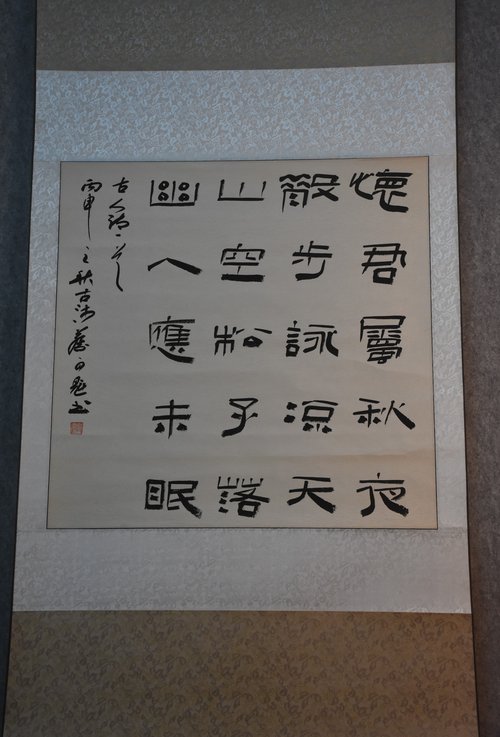 懷君屬秋夜
散步詠涼天
山空松子落
幽人應未眠
古人詩一首
丙申之秋古沛書